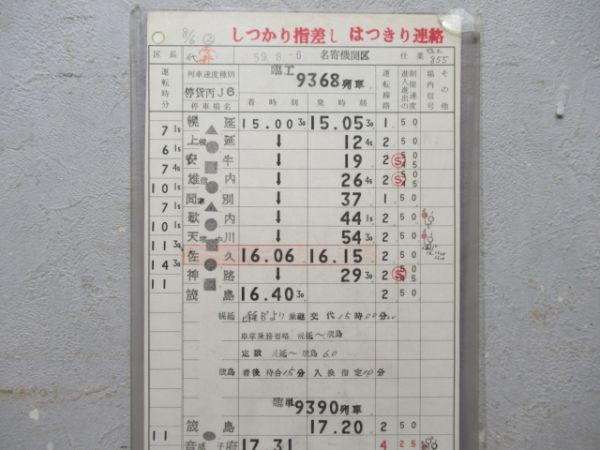 しつかり指差し はつきり連絡
8/6 (2)
区長 代 59.8.-6 名寄機関区 仕業 855
運転時分 列車速度種別 停貨丙J6. 停車場名 臨工 9368列車 着時刻 発時刻 運転線路 制限速度 進入進出の 場内信号 その他
幌延 15.00 30 15.05 30 1 50
7 1s
上幌延 ↓ 12 4s 2 50
6 1s
安牛 ↓ 19 2 S
7
雄信内 ↓ 26 4s 2 S
10 1s
問寒別 ↓ 37 1 50
7
歌内 ↓ 44 1s 2 50
10 1s
天塩中川 ↓ 54 30 2 50
11 30
佐久 16.06 16.15 2 50
14 30
神路 ↓ 29 30 2 S
11
筬島 16.40 30 2 50
幌延 より乗継交代15時00分
車掌乗務省略 幌延〜筬島
定数 幌延〜筬島 60
筬島 着後待合15分 入換指定10分
臨単 9390列車
筬島 17.20 2 50
11
音威子府 17.31 4 25